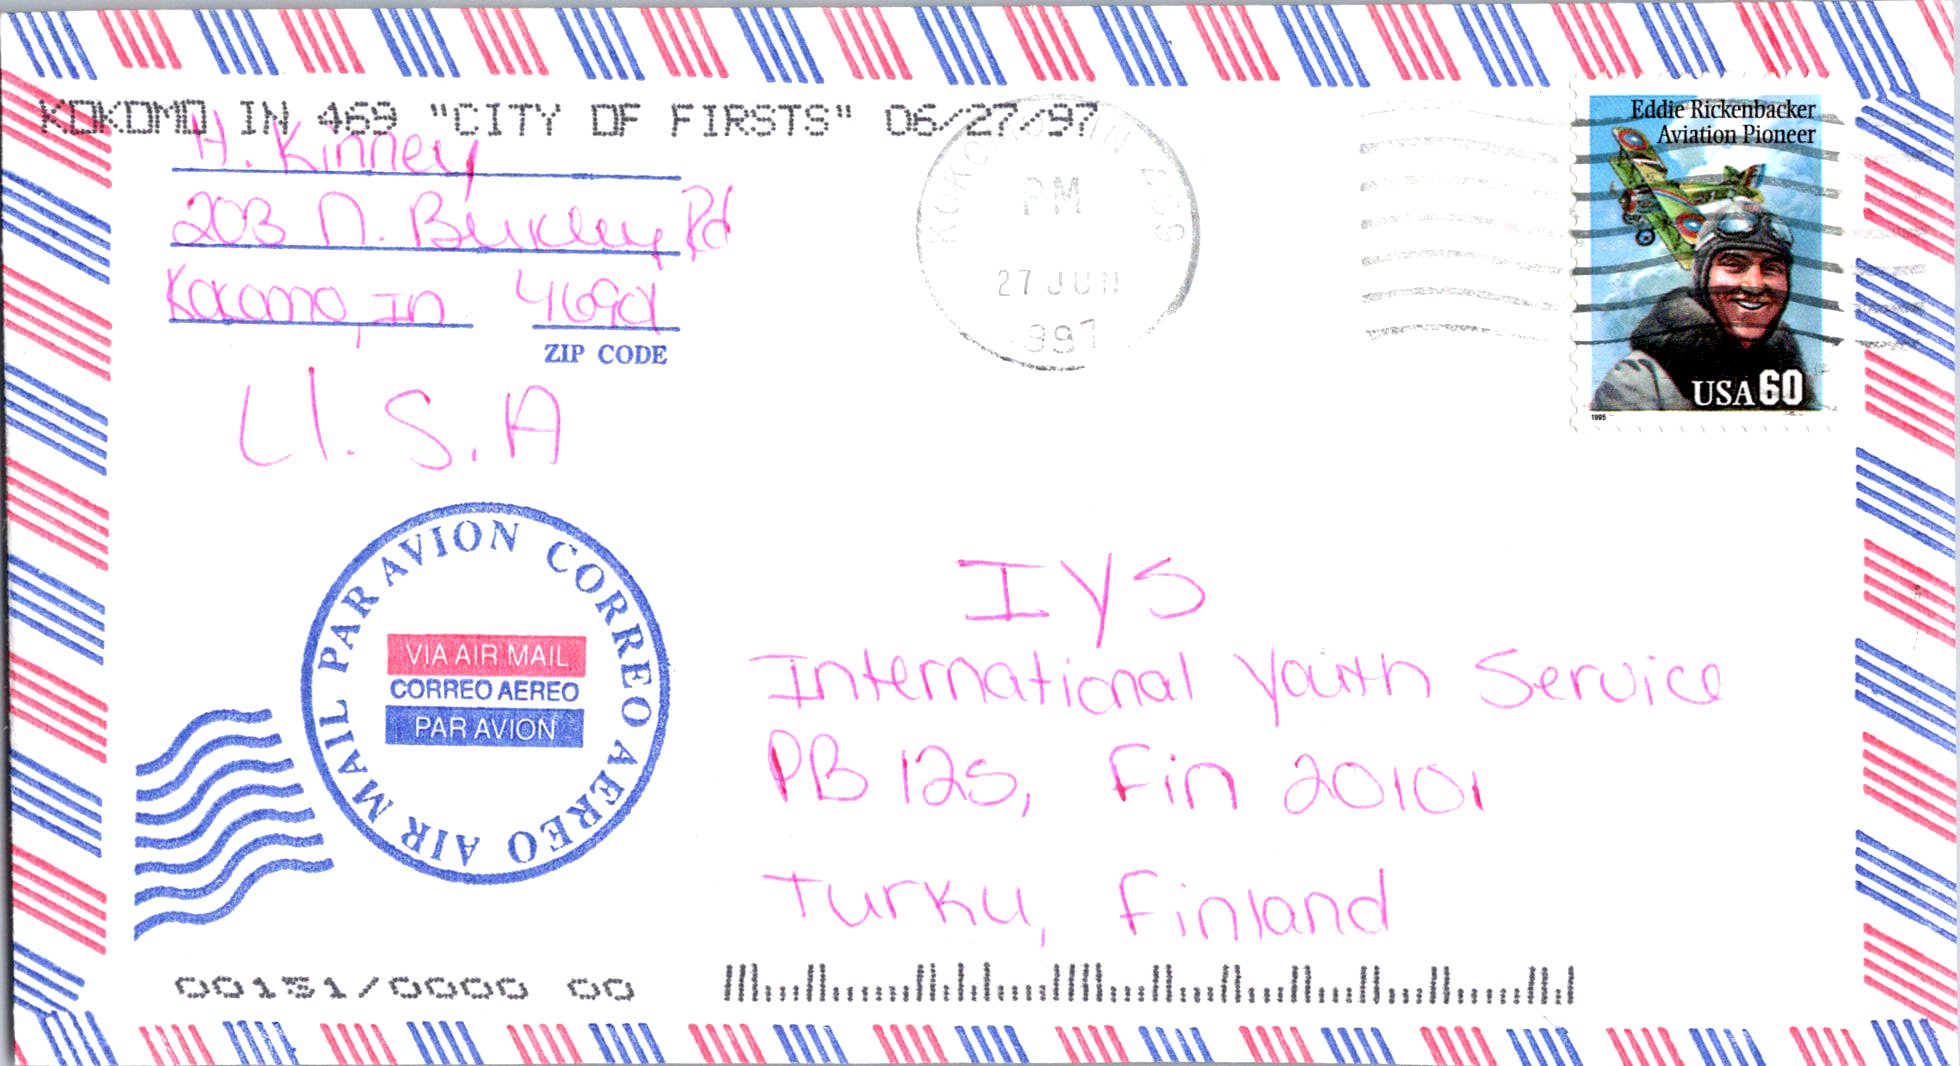 KOKOMO IN 469 "CITY OF FIRSTS" 06/27/97
H. Kinney
203 N. Berkley Rd
Kokomo, In 46901
ZIP CODE
U.S.A
KOKOMO IN 469
PM
27 JUN
1997
Eddie Rickenbacker
Aviation Pioneer
USA 60
1995
AIR MAIL PAR AVION CORREO AEREO
VIA AIR MAIL
CORREO AEREO
PAR AVION
IYS
International Youth Service
PB 125, Fin 20101
Turku, Finland
00131/0000 00